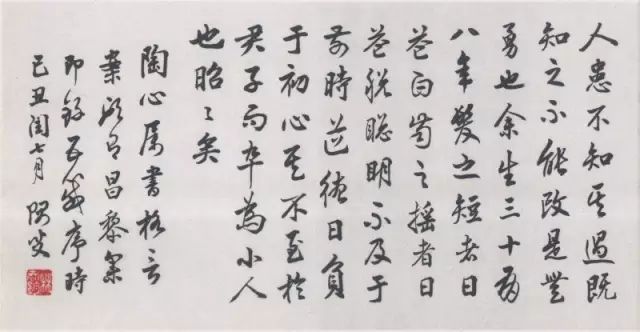 人患不知其過既
知之不能改是無
勇也余生三十有
八年髮之短者日
益白齒之搖者日
益脫聰明不及于
前時道德日負
于初心其不至於
君子而卒為小人
也昭〻矣
陶心属書格言
案頭有昌黎集
即錄五箴序時
己丑閏七月